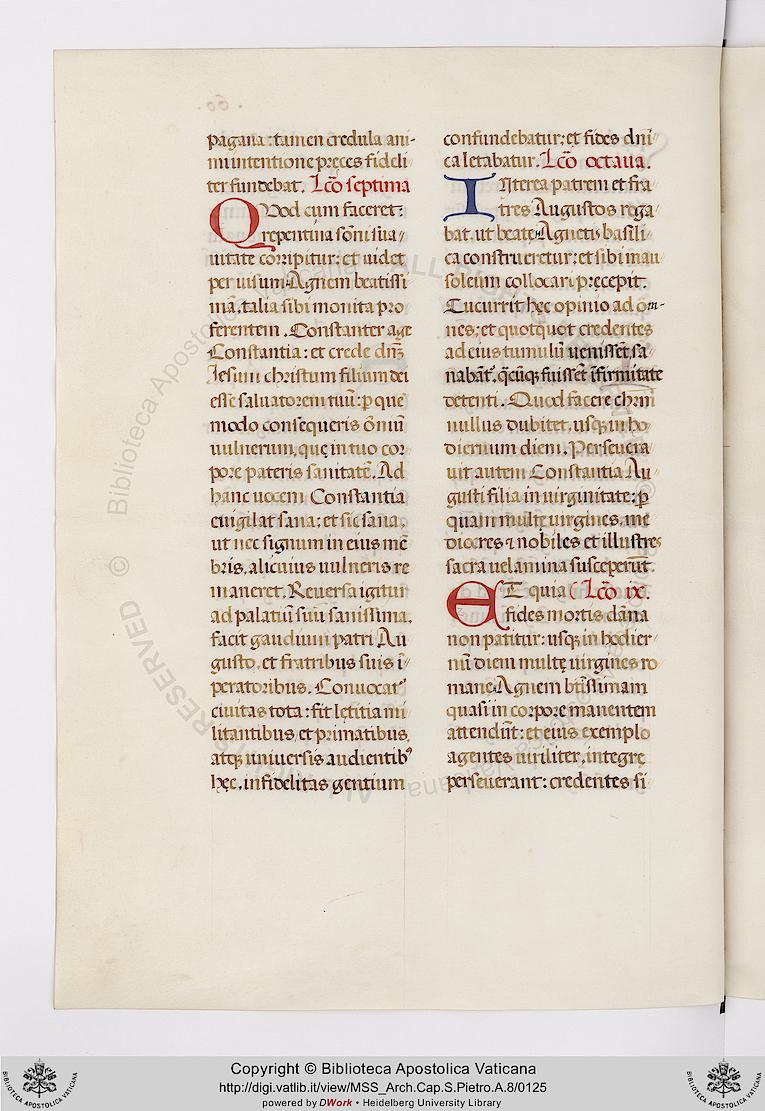 .60.
pagana: tamen credula ani-
mi intentione pręces fideli
ter fundebat. Lc̄o septima
QVod cum faceret:
repentina sōni sua/
uitate corripitur: et uidet
per uisum Agnem beatissi
mā, talia sibi monita pro
ferentem. Constanter age
Constantia: et crede dn̄ʒ
Iesum christum filium dei
esse saluatorem tuū: p̱ que
modo consequeris ōniū
uulnerum, quę in tuo cor
pore pateris sanitatē. Ad
hanc uocem Constantia
euigilat sana: et sic sana,
ut nec signum in eius mē
bris, alicuius uulneris re
maneret. Reuersa igitur
ad palatiū suū sanissima,
facit gaudium patri Au
gusto, et fratribus suis ī/
peratoribus. Conuocat᷒
ciuitas tota: fit lętitia mi
litantibus, et primatibus,
atqꝫ uniuersis audientibꝰ
hęc, infidelitas gentium
confundebatur: et fides dn̄i
ca letabatur. Lc̄o octaua.
INterea patrem et fra
tres Augustos roga
bat, ut beatę Agnetis basili
ca construeretur: et sibi mau
soleum collocari pręcepit.
Cucurrit hęc opinio ad om-
nes: et quotquot credentes
ad eius tumulū uenissēt, sa
nabānt᷒, q̄cūqꝫ fuissēt īfirmitate
detenti. Quod facere chr̄ni
nullus dubitet, usqꝫ in ho
diernum diem. Perseuera
uit autem Constantia Au
gusti filia in uirginitate: p̱
quam multę uirgines, me
diocres ⁊ nobiles et illustres
sacra uelamina susceperūt.
ET quia Lc̄o ix.
fides mortis dāna
non patitur: usqꝫ in hodier
nū diem multę uirgines ro
manę Agnem bt̄issimam
quasi in corpore manentem
attendūt: et eius exemplo
agentes uiriliter, integrę
perseuerant: credentes si
© Biblioteca Apostolica Vaticana ALL RIGHTS RESERVED
Copyright © Biblioteca Apostolica Vaticana
http://digi.vatlib.it/view/MSS_Arch.Cap.S.Pietro.A.8/0125
powered by DWork • Heidelberg University Library
BIBLIOTECA APOSTOLICA VATICANA
BIBLIOTECA APOSTOLICA VATICANA